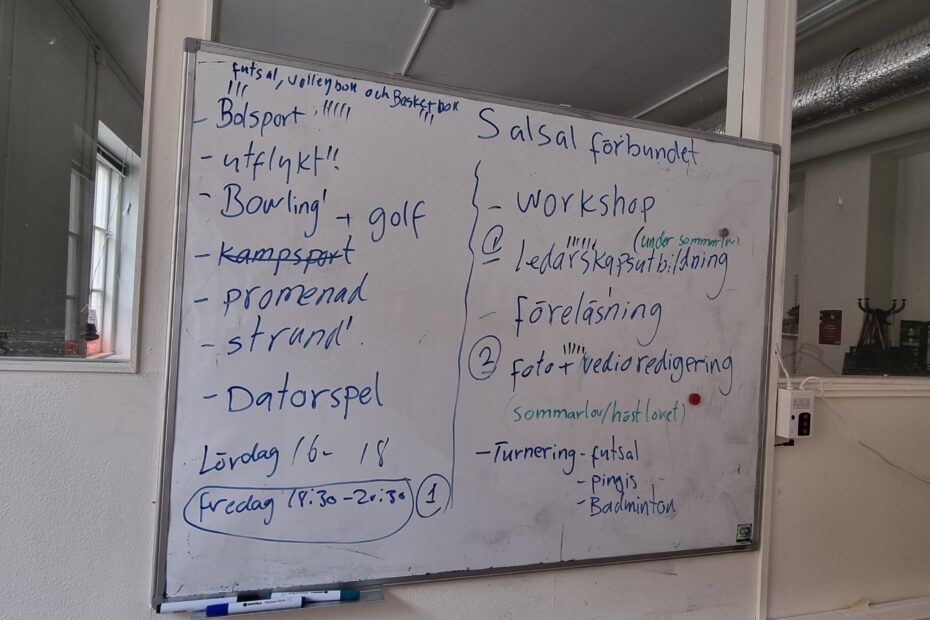 futsal, volleyboll och Basketboll
- Bolsport
- utflykt!!
- Bowling + golf
- kampsport
- promenad
- strand
- Datorspel
Lördag 16- 18
fredag 18:30 -20:30 1
Salsal förbundet
- workshop
1 (under sommarlov)
ledarskapsutbildning
- föreläsning
2 foto + vedioredigering
(sommarlov/höstlovet)
- Turnering - futsal
- pingis
- Badminton